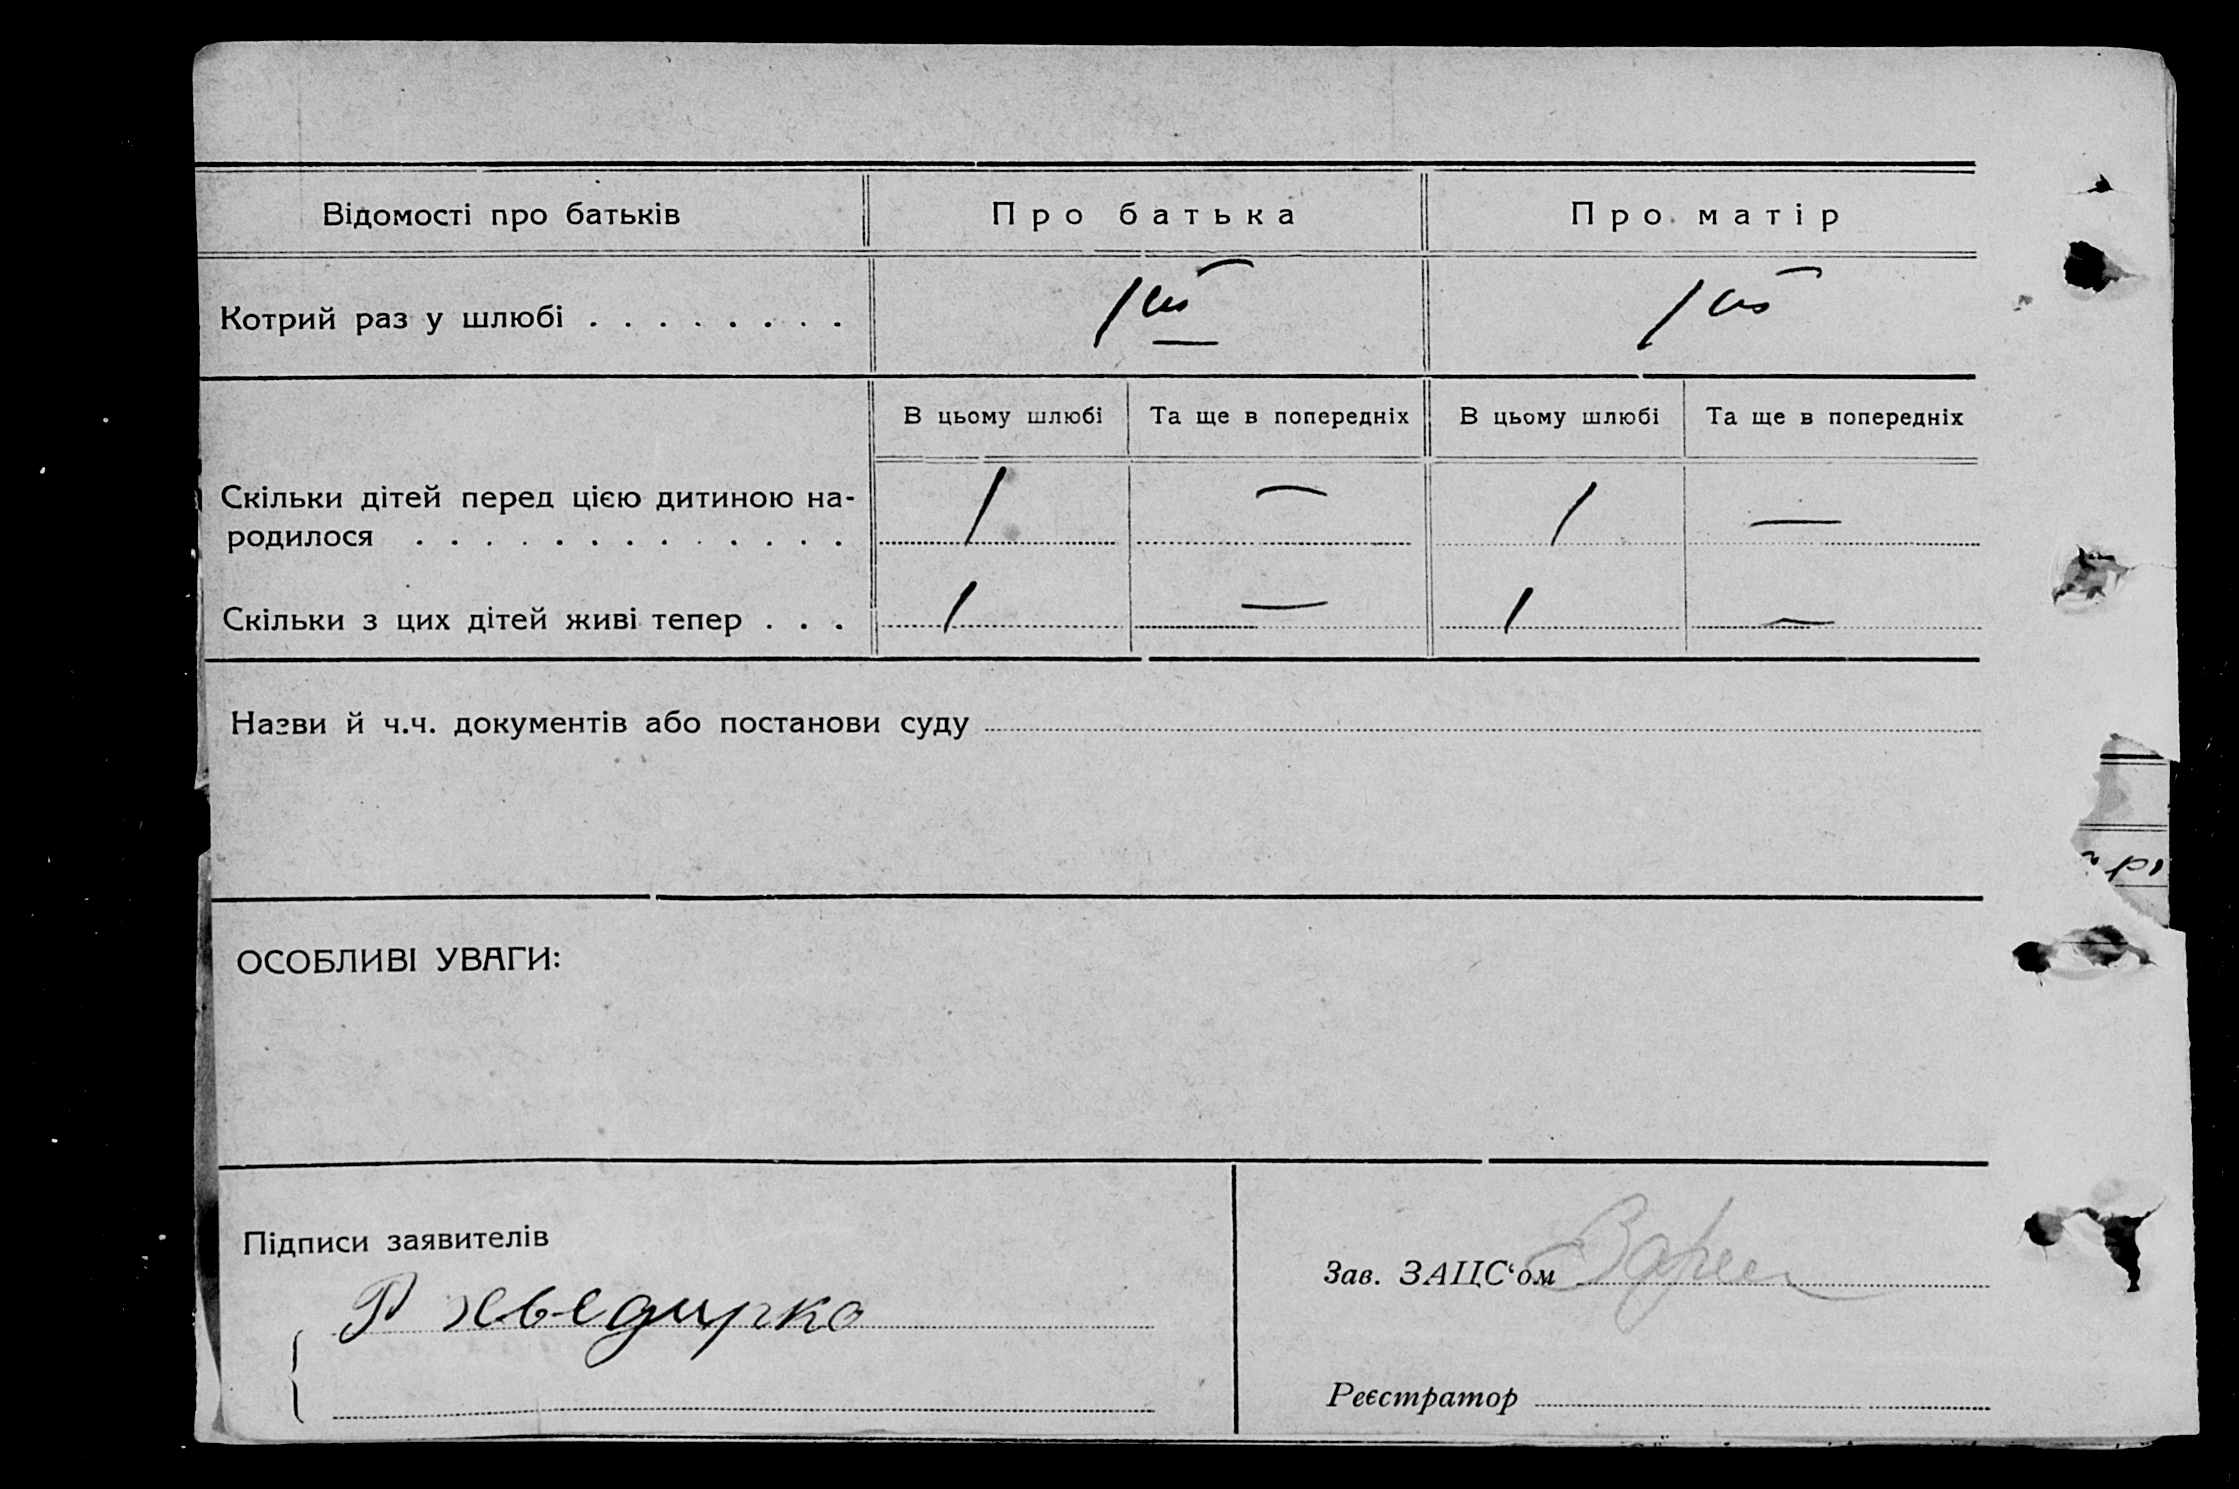 Відомості про батьків Про батька Про матір
Котрий раз у шлюбі . . . . . . . . 1ий 1ий
В цьому шлюбі Та ще в попередніх В цьому шлюбі Та ще в попередніх
Скільки дітей перед цією дитиною на-
родилося . . . . . . . . . . . . . 1 — 1 —
Скільки з цих дітей живі тепер . . . 1 — 1 —
Назви й ч.ч. документів або постанови суду
ОСОБЛИВІ УВАГИ:
Підписи заявителів
Зав. ЗАЦС‘ом
Реєстратор